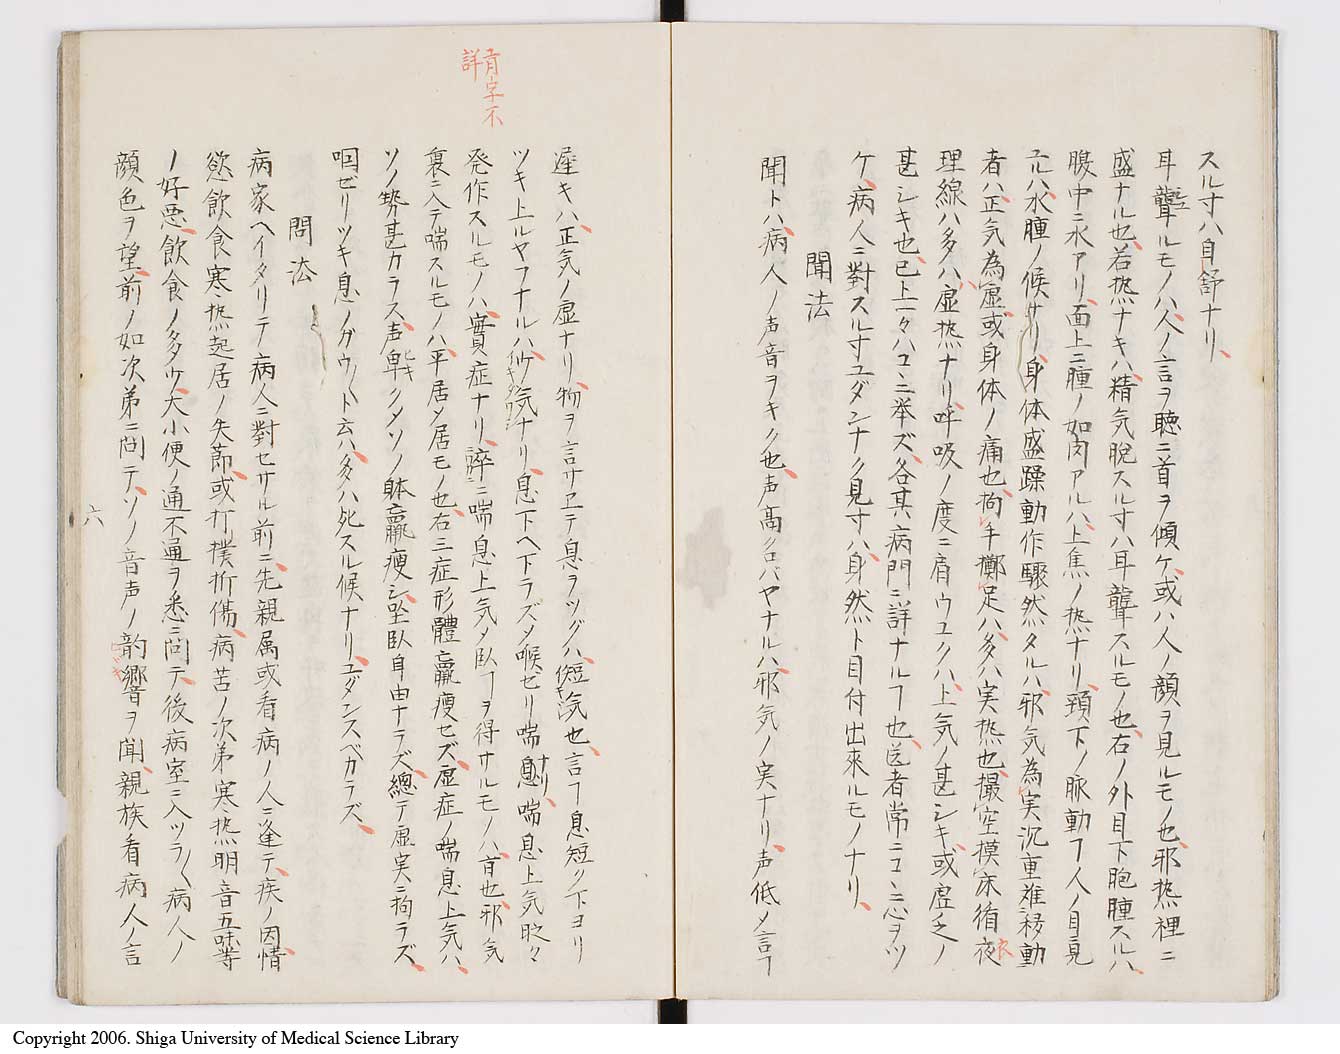 スル寸ハ自舒ナリ
耳聾ルモノハ人ノ言ヲ聴ニ首ヲ傾ケ或ハ人ノ顔ヲ見ルモノ也邪熱裡ニ
盛ナル也若熱ナキハ精気脱スル寸ハ耳聾スルモノ也右ノ外目下胞腫スルハ
腹中ニ水アリ面上ニ腫ノ如肉アルハ上焦ノ熱ナリ頸下ノ脈動ヿ人ノ目見
ユルハ水腫ノ候ナリ身体盛躁動作驟然タルハ邪気為実沉重難移動
者ハ正気為虚或身体ノ痛也拘手擲足ハ多ハ実熱也撮空摸床循夜
衣
理線ハ多ハ虚熱ナリ呼吸ノ度ニ肩ウユクハ上気ノ甚シキ或虚乏ノ
甚シキ也已上一々ハコヽニ挙ズ各其病門ニ詳ナルヿ也医者常ニコヽニ心ヲツ
ケ病人ニ對スル寸ユダンナク見寸ハ身然ト目付出來ルモノナリ
聞法
聞トハ病人ノ声音ヲキク也声高クロバヤナルハ邪気ノ実ナリ声低メ言ヿ
遅キハ正気ノ虚ナリ物ヲ言サエテ息ヲツグハ短気也言ヿ息短ク下ヨリ
ツキ上ルヤフナルハ少気ナリ息下ヘ下ラズメ喉ゼリ喘息ナリ喘息上気時々
発作スルモノハ實症ナリ卒ニ喘息上気メ臥ヿヲ得サルモノハ肓也邪気
肓字不
詳
裏ニ入テ喘スルモノハ平居メ居モノ也右三症形體羸痩セズ虚症ノ喘息上気ハ
ソノ勢甚カラス声卑クメソノ躰羸痩シ坐臥自由ナラズ總テ虚実ニ拘ラズ
咽ゼリツキ息ノガウ〱ト云ハ多ハ死スル候ナリユダンスベカラズ
問法
病家ヘイタリテ病人ニ對セサル前ニ先親属或看病ノ人ニ逢テ疾ノ因情
慾飲食寒熱起居ノ失節或打撲折傷病苦ノ次第寒熱明音五味等
ノ好悪飲食ノ多少大小便ノ通不通ヲ悉ニ問テ後病室ニ入ツラ〱病人ノ
顔色ヲ望前ノ如次第ニ問テソノ音声ノ韵響ヲ聞親族看病人ノ言
六
Copyright 2006. Shiga University of Medical Science Library